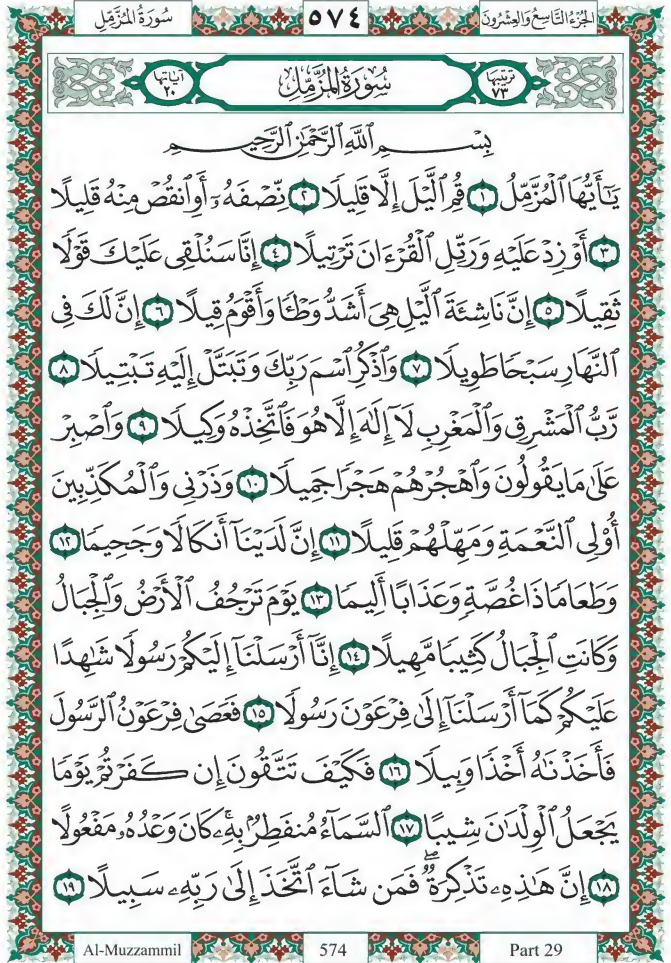 سُورَةُ المُزَّمِّل ٥٧٤ الجُزْءُ التَّاسِعُ وَالعِشْرُونَ
ترتيبها ٧٣ سُورَةُ المُزَّمِّلِ آياتها ٢٠
بِسْمِ ٱللَّهِ ٱلرَّحْمَٰنِ ٱلرَّحِيمِ
يَٰٓأَيُّهَا ٱلْمُزَّمِّلُ ١ قُمِ ٱلَّيْلَ إِلَّا قَلِيلًا ٢ نِّصْفَهُۥٓ أَوِ ٱنقُصْ مِنْهُ قَلِيلًا
٣ أَوْ زِدْ عَلَيْهِ وَرَتِّلِ ٱلْقُرْءَانَ تَرْتِيلًا ٤ إِنَّا سَنُلْقِى عَلَيْكَ قَوْلًا
ثَقِيلًا ٥ إِنَّ نَاشِئَةَ ٱلَّيْلِ هِىَ أَشَدُّ وَطْـًٔا وَأَقْوَمُ قِيلًا ٦ إِنَّ لَكَ فِى
ٱلنَّهَارِ سَبْحًا طَوِيلًا ٧ وَٱذْكُرِ ٱسْمَ رَبِّكَ وَتَبَتَّلْ إِلَيْهِ تَبْتِيلًا ٨
رَّبُّ ٱلْمَشْرِقِ وَٱلْمَغْرِبِ لَآ إِلَٰهَ إِلَّا هُوَ فَٱتَّخِذْهُ وَكِيلًا ٩ وَٱصْبِرْ
عَلَىٰ مَا يَقُولُونَ وَٱهْجُرْهُمْ هَجْرًا جَمِيلًا ١٠ وَذَرْنِى وَٱلْمُكَذِّبِينَ
أُو۟لِى ٱلنَّعْمَةِ وَمَهِّلْهُمْ قَلِيلًا ١١ إِنَّ لَدَيْنَآ أَنكَالًا وَجَحِيمًا ١٢
وَطَعَامًا ذَا غُصَّةٍ وَعَذَابًا أَلِيمًا ١٣ يَوْمَ تَرْجُفُ ٱلْأَرْضُ وَٱلْجِبَالُ
وَكَانَتِ ٱلْجِبَالُ كَثِيبًا مَّهِيلًا ١٤ إِنَّآ أَرْسَلْنَآ إِلَيْكُمْ رَسُولًا شَٰهِدًا
عَلَيْكُمْ كَمَآ أَرْسَلْنَآ إِلَىٰ فِرْعَوْنَ رَسُولًا ١٥ فَعَصَىٰ فِرْعَوْنُ ٱلرَّسُولَ
فَأَخَذْنَٰهُ أَخْذًا وَبِيلًا ١٦ فَكَيْفَ تَتَّقُونَ إِن كَفَرْتُمْ يَوْمًا
يَجْعَلُ ٱلْوِلْدَٰنَ شِيبًا ١٧ ٱلسَّمَآءُ مُنفَطِرٌۢ بِهِۦ ۚ كَانَ وَعْدُهُۥ مَفْعُولًا
١٨ إِنَّ هَٰذِهِۦ تَذْكِرَةٌ ۖ فَمَن شَآءَ ٱتَّخَذَ إِلَىٰ رَبِّهِۦ سَبِيلًا ١٩
Al-Muzzammil 574 Part 29